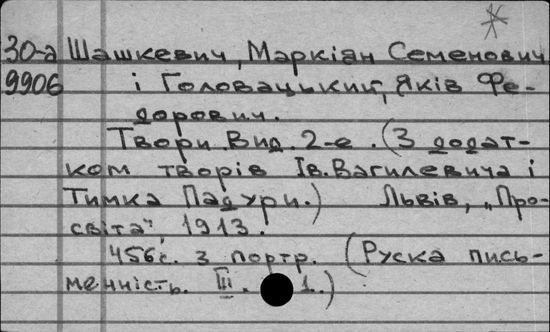 30-а Шашкевич, Маркіян Семенович
9906 і Головацький, Яків Фе-
дорович.
Твори. Вид. 2-е. (З додат-
ком творів Ів. Вагилевича і
Тимка Падури.) Львів, „Про-
світа", 1913.
456с. з портр. (Руска пись-
менність. III. 1.)